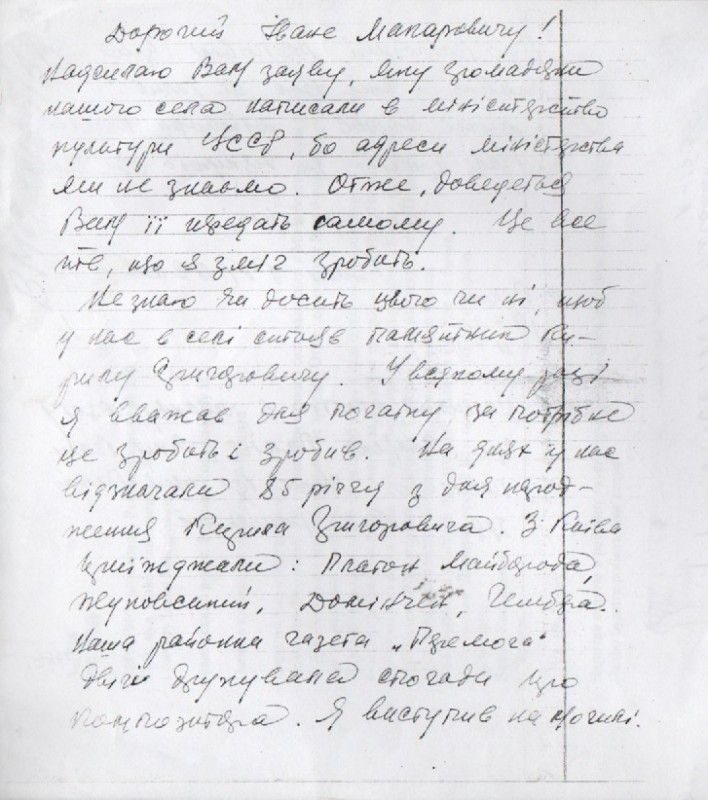 Дорогий Іване Макаровичу!
Надсилаю Вам заяву, яку громадяни
нашого села написали в міністерство
культури УССР, бо адреси міністерства
ми не знаємо. Отже, доведеться
Вам її передать самому. Це все
те, що я зміг зробить.
Не знаю чи досить цього чи ні, щоб
у нас в селі стояв памятник Ки-
рилу Григоровичу. У всякому разі
я вважав для початку за потрібне
це зробить і зробив. На днях у нас
відзначали 85 річчя з дня народ-
ження Кирила Григоровича. З Київа
приїжджали: Платон Майборода,
Жуковський, Домінчен,
Наша районна газета „Перемога"
двічі друкувала спогади про
композитора. Я виступив на